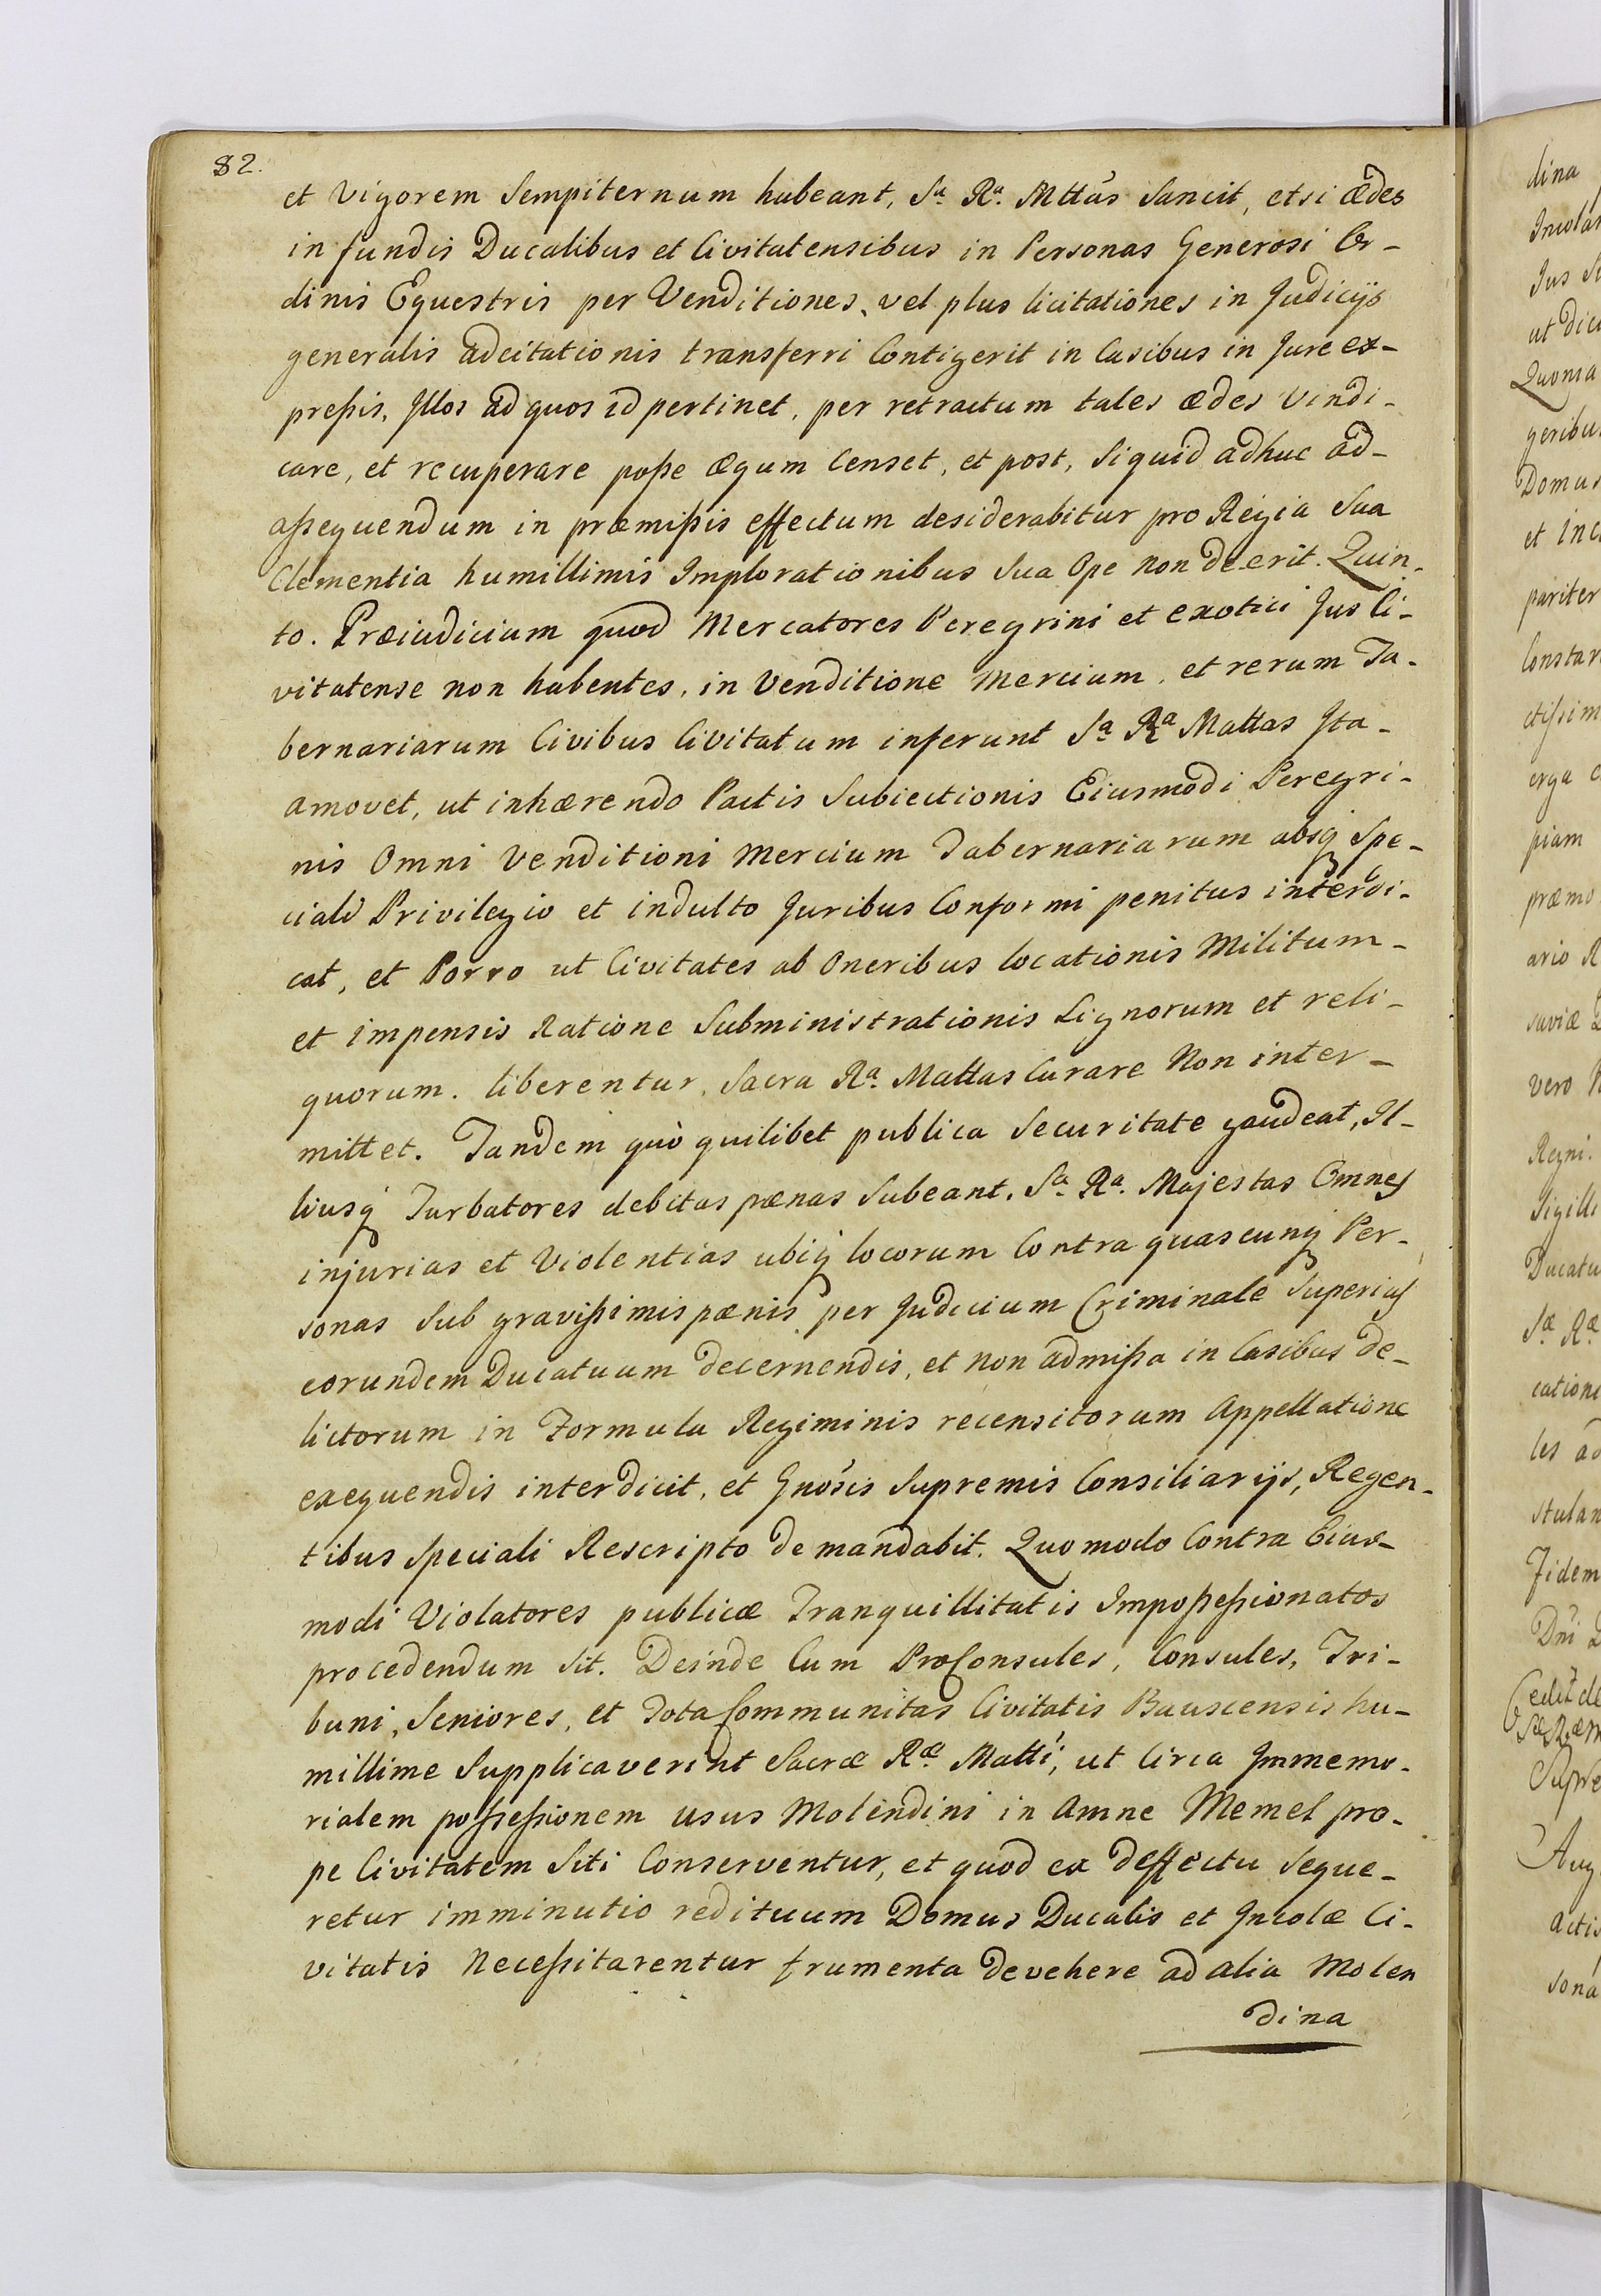 82.
et Vigorem Sempiternum habeant, Sa Ra. Mttas Sancit, etsi ædes
in fundis Ducalibus et Civitatensibus in Personas Generosi Or-
dinis Equestris per Venditiones, vel plus licitationes in Judicijs
generalis adcitationis transferri Contigerit in Casibus in Jure ex-
preßis, Jllos ad quos id pertinet, per retractum tales ædes Vindi-
care, et recuperare poße æqum Censet, et post, Siquid adhuc ad-
aßequendum in præmißis effectum desiderabitur pro Regia Sua
Clementia humillimis Implorationibus Sua Ope Non deerit. Quin-
to. Præiudicium quod Mercatores Peregrini et exotici Jus Ci-
vitatense non habentes, in Venditione Mercium, et rerum Ta-
bernariarum Civibus Civitatum inferunt Sa Ra Mattas Jta-
amovet, ut inhærendo Pactis Subiectionis Eiusmodi Peregri-
nis Omni Venditioni Mercium Tabernariarum absq Spe-
ciali Privilegio et indulto Juribus Conformi penitus interdi-
cat, et Porro ut Civitates ab Oneribus locationis Militum-
et impensis Ratione Subministrationis Lignorum et reli-
quorum. liberentur, Sacra Ra. Mattas Curare Non inter-
mittet. Tandem quò quilibet publica Securitate gaudeat, Il-
liusq Turbatores debitas pœnas Subeant, Sa. Ra. Majestas Omnes
injurias et Violentias ubiq locorum Contra quascunq Per-
sonas Sub gravißimis pœnis per Judicium Criminale Superius
eorundem Ducatuum decernendis, et non admißa in Casibus de-
lictorum in Formula Regiminis recensitorum Appellatione
exequendis interdicit, et Gnosis Supremis Consiliarijs, Regen-
tibus Speciali Rescripto demandabit. Quomodo Contra Eius-
modi Violatores publicæ Tranquillitatis Impoßeßionatos
procedendum Sit. Deinde Cum ProConsules, Consules, Tri-
buni, Seniores, et Tota Communitas Civitatis Bauscensis hu-
millime Supplicaverint Sacræ Ræ. Matti, ut Circa Jmmemo-
rialem poßeßionem usus Molendini in Amne Memel pro-
pe Civitatem Siti Conserventur, et quod ex deffectu Seque-
retur imminutio redituum Domus Ducalis et Jncolæ Ci-
vitatis Neceßitarentur frumenta devehere ad alia Molen
dina
dina
Jus
Domus
pariter
piam
vero
Regni.
Ducatu
Sæ Ræ
Fidem